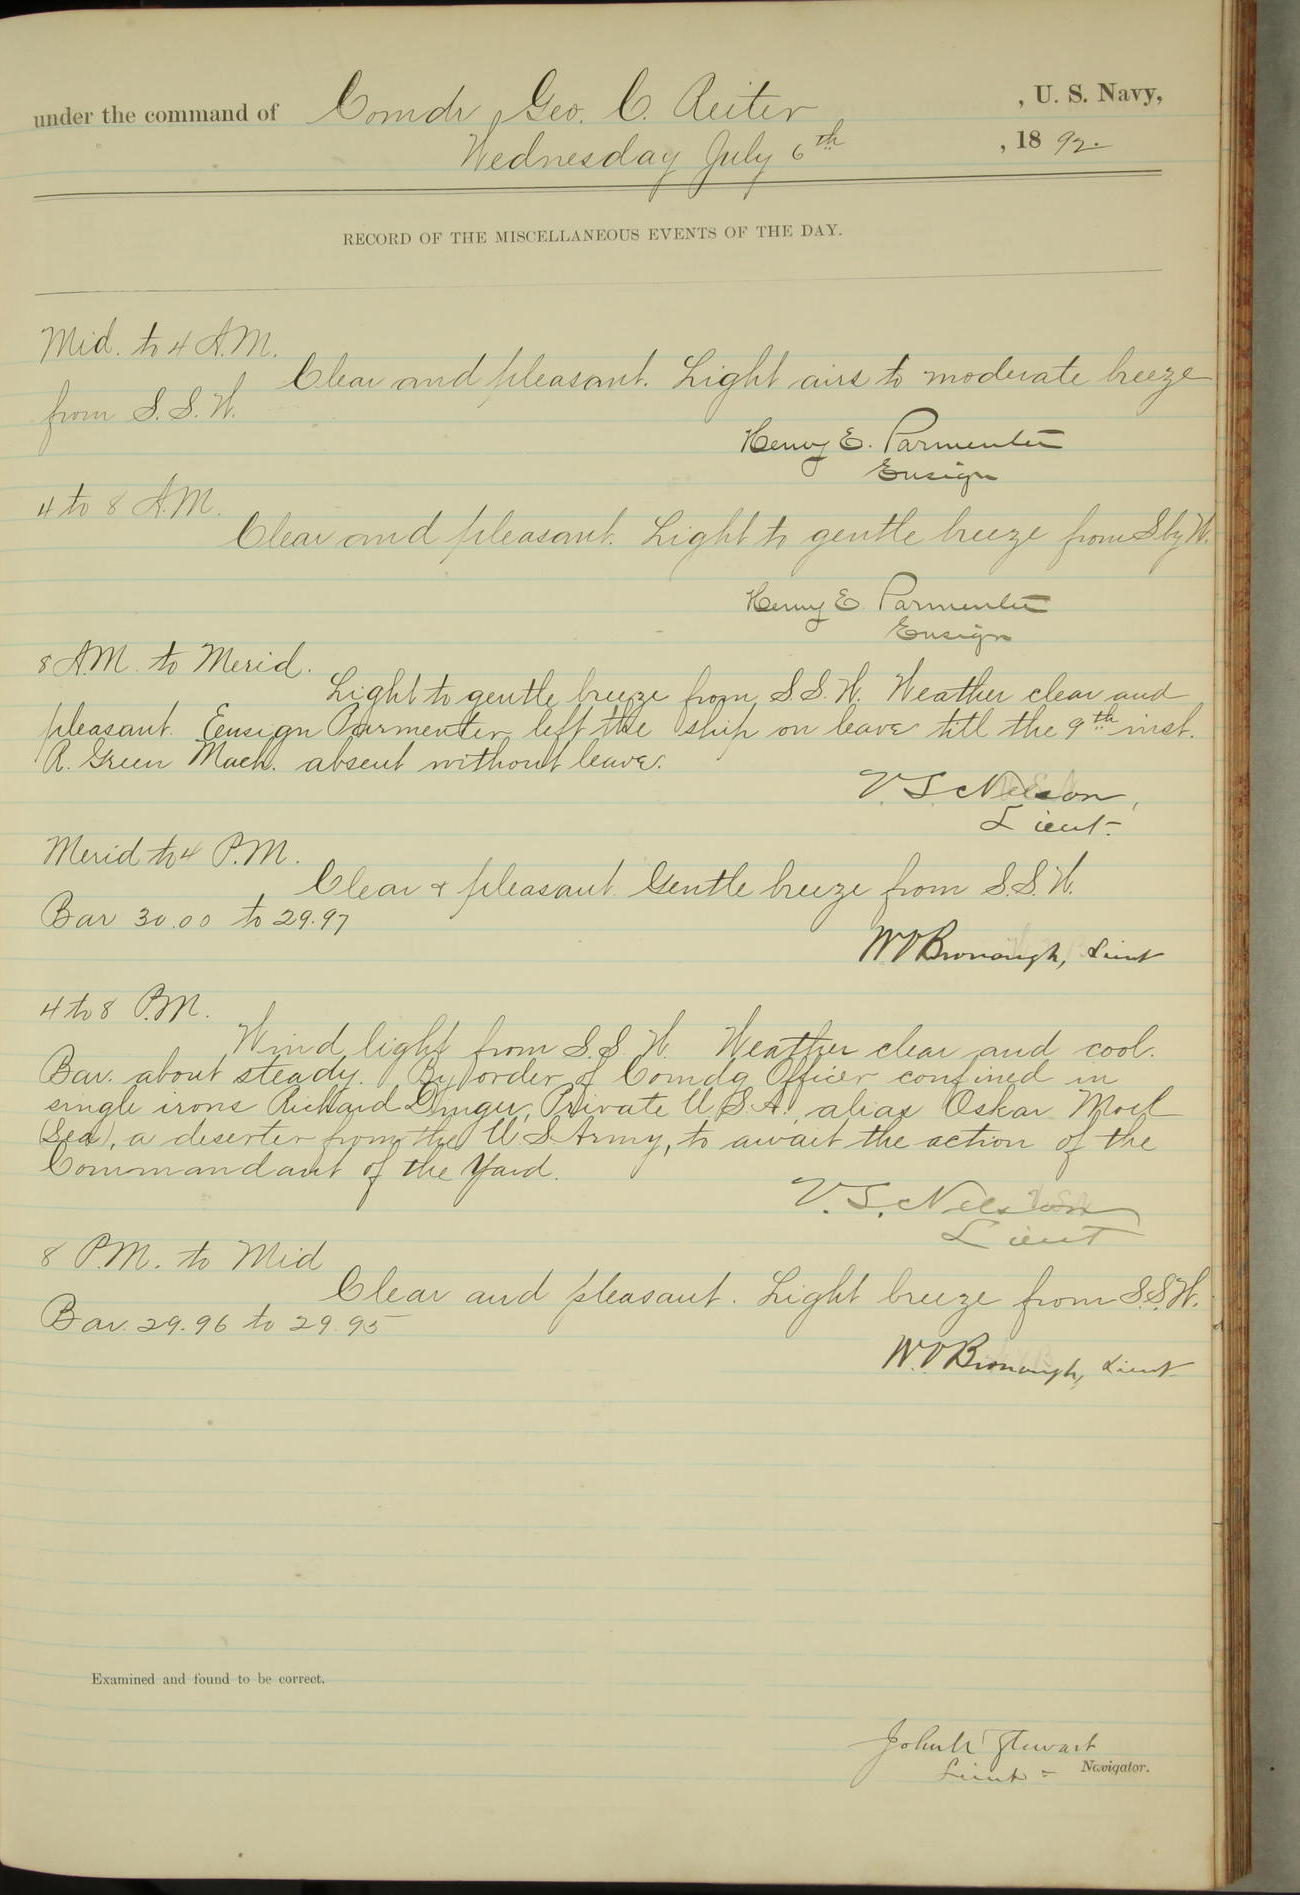 under the command of Comdr Geo. C. Reiter , U. S. Navy,
Wednesday July 6th , 1892.
RECORD OF THE MISCELLANEOUS EVENTS OF THE DAY.
Mid. to 4 A.M.
Clear and pleasant. Light airs to moderate breeze
from S.S.W.
Henry E. Parmenter
Ensign
4 to 8 A.M.
Clear and pleasant. Light to gentle breeze from S by W.
Henry E. Parmenter
Ensign
8 A.M. to Merid.
Light to gentle breeze from S.S.W. Weather clear and
pleasant. Ensign Parmenter left the ship on leave till the 9th inst.
R. Green Mach. absent without leave.
V. S. Nelson,
Lieut.
Merid to 4 P.M.
Clear & pleasant. Gentle breeze from S.S.W.
Bar 30.00 to 29.97
W V Bronaugh, Lieut
4 to 8 P.M.
Wind light from S.S.W. Weather clear and cool.
Bar. about steady. By order of Comdg Officer confined in
single irons Richard Private U.S.A. alias Oskar
(Sea), a deserter from the U.S. Army, to await the action of the
Commandant of the Yard.
V. S. Nelson
Lieut
8 P.M. to Mid
Clear and pleasant. Light breeze from S.S.W.
Bar. 29.96 to 29.95
W. V Bronaugh, Lieut
Examined and found to be correct.
Stewart
Lieut - Navigator.